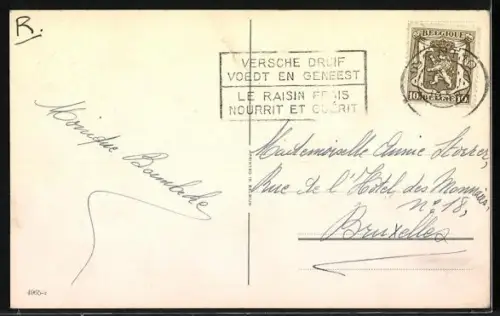 R.
VERSCHE DRUIF
VOEDT EN GENEEST
LE RAISIN FRAIS
NOURRIT ET GUÉRIT
BELGIQUE
10 BELGIE 10
Monique
Mademoiselle Annie Storrer,
Rue de l'Hôtel des Monnaies,
n° 18,
Bruxelles
4965-1